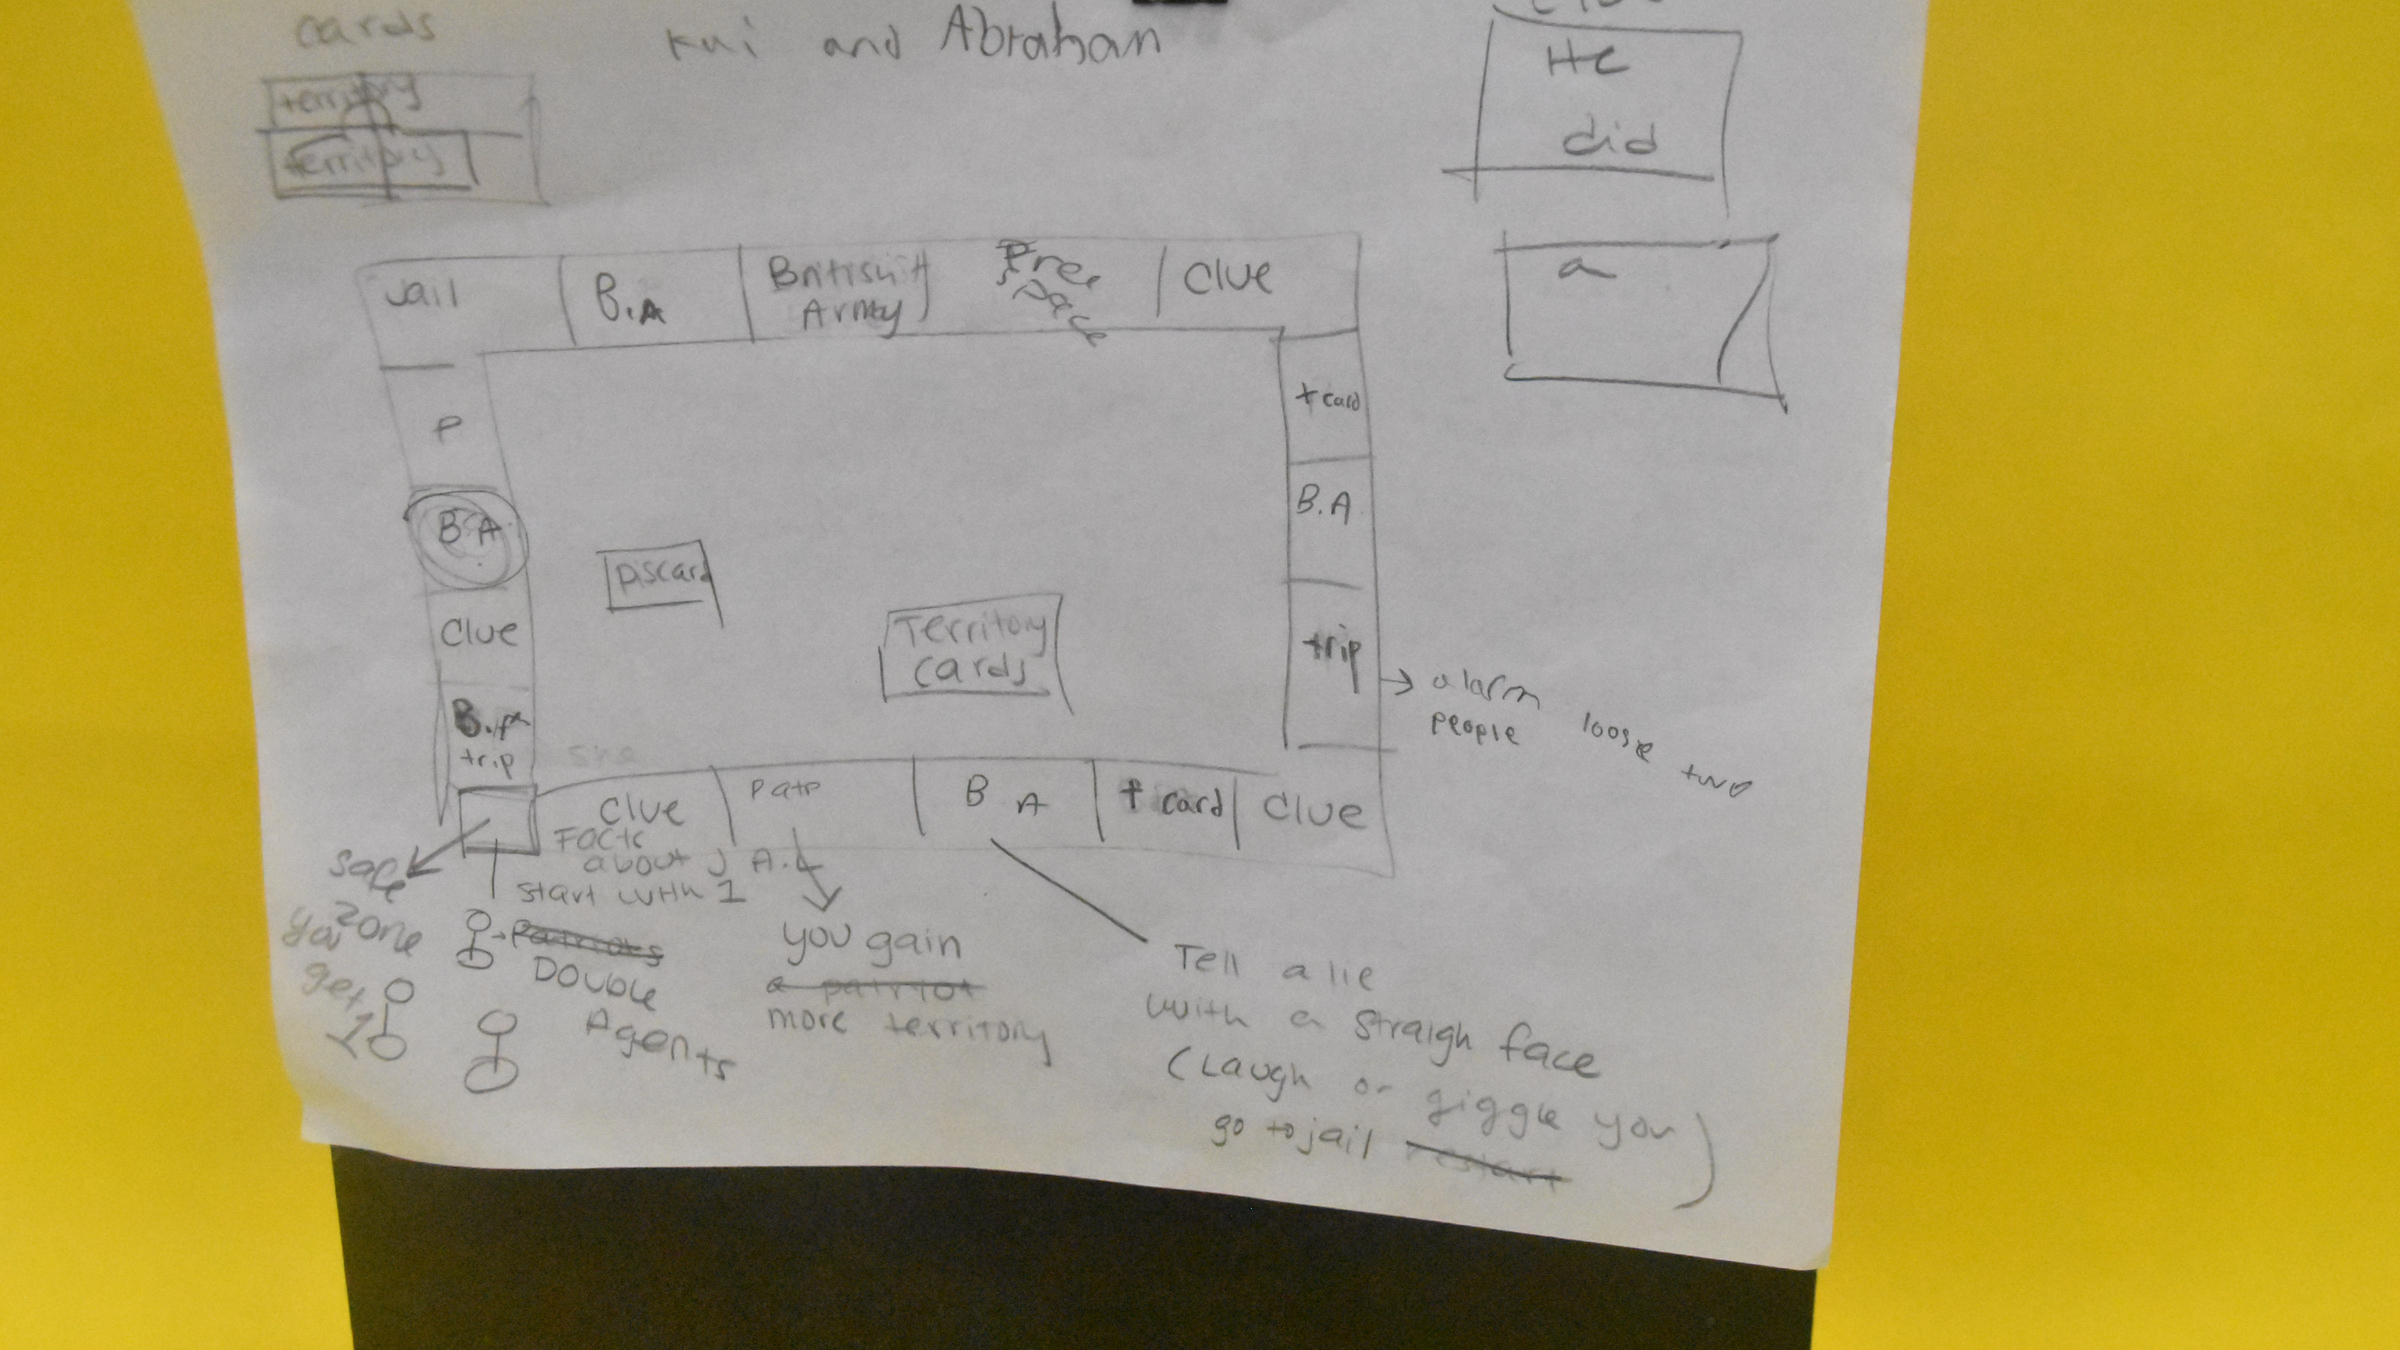 cards
Kui and Abraham
territory
territory
He
did
a
Jail
B.A
British
Army
Free
space
Clue
P
B A
Clue
B.A
trip
t card
B.A
trip
Discard
Territory
cards
→ alarm loose two
people
Clue
Patr
B A
t card
Clue
Facts
about J A.
start with 1
safe
zone
you
get
1
Patriots
Double
Agents
you gain
a patriot
more territory
Tell a lie
with a straigh face
(Laugh or giggle you
go to jail restart )